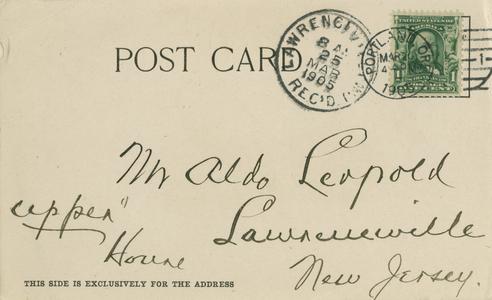 POST CARD.
LAWRENCEVI
8 A
MAR
190
REC'D.
PORTLAND, ORE.
MAR
4
190
1
UNITED STATES OF AMERICA
ONE CENT
Mr Aldo Leopold
"upper"
Lawrenceville
House
New Jersey.
THIS SIDE IS EXCLUSIVELY FOR THE ADDRESS